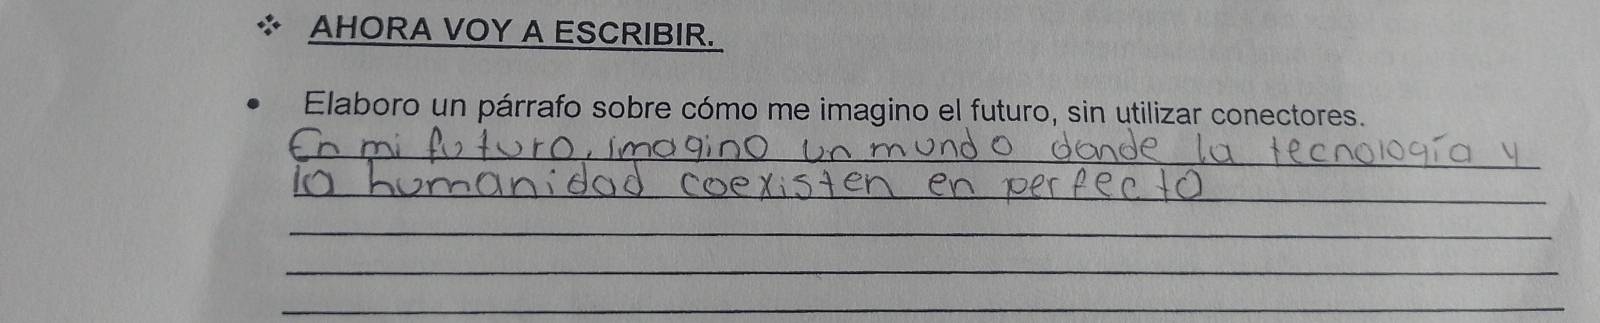 ❖ AHORA VOY A ESCRIBIR.
• Elaboro un párrafo sobre cómo me imagino el futuro, sin utilizar conectores.
En mi futuro, imagino un mundo donde la tecnología y
la humanidad coexisten en perfecto